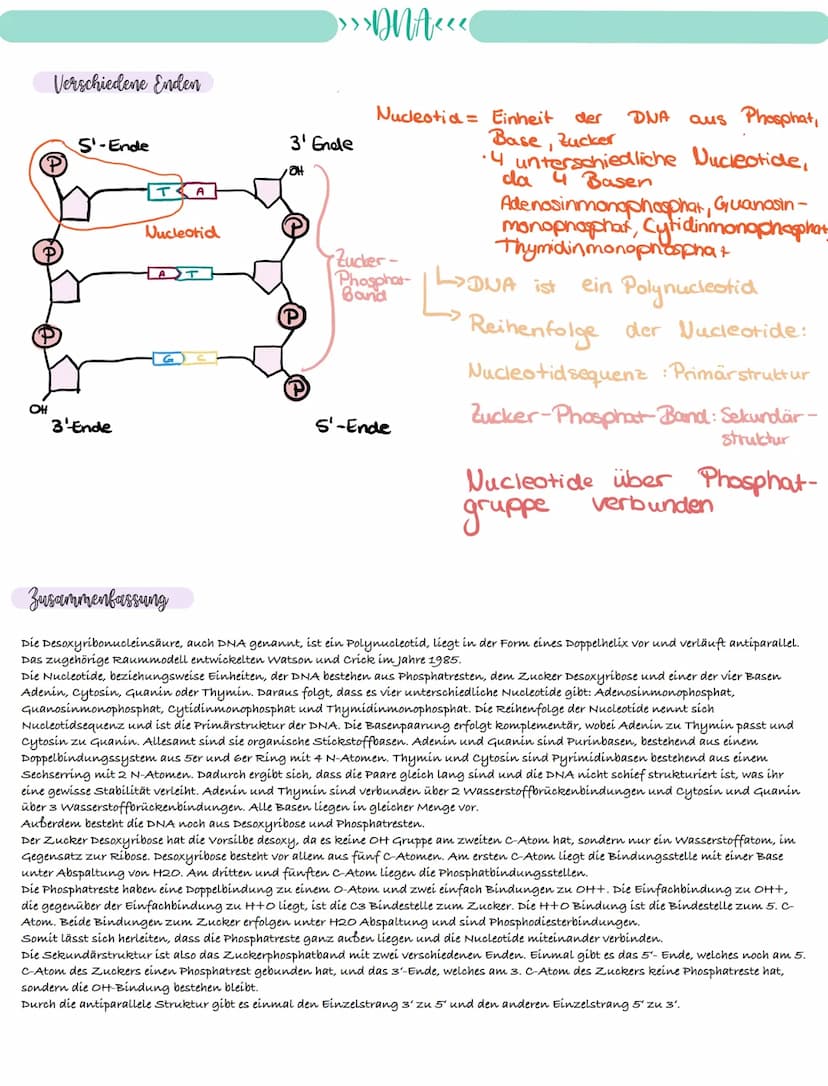 >>>DNA<<<
Verschiedene Enden
5'-Ende
3' Ende
P
OH
T A
Nucleotid
P
P
A T
Zucker-
Phosphat-
Band
P
P
G C
P
OH
3'-Ende
5'-Ende
Nucleotid = Einheit der DNA aus Phosphat,
Base, Zucker
· 4 unterschiedliche Nucleotide,
da 4 Basen
Adenosinmonophosphat, Guanosin-
monophosphat, Cytidinmonophosphat
Thymidinmonophosphat
↳ DNA ist ein Polynucleotid
↳ Reihenfolge der Nucleotide:
Nucleotidsequenz : Primärstruktur
Zucker-Phosphat-Band: Sekundär-
struktur
Nucleotide über Phosphat-
gruppe verbunden
Zusammenfassung
Die Desoxyribonucleinsäure, auch DNA genannt, ist ein Polynucleotid, liegt in der Form eines Doppelhelix vor und verläuft antiparallel.
Das zugehörige Raummodell entwickelten Watson und Crick im Jahre 1985.
Die Nucleotide, beziehungsweise Einheiten, der DNA bestehen aus Phosphatresten, dem Zucker Desoxyribose und einer der vier Basen
Adenin, Cytosin, Guanin oder Thymin. Daraus folgt, dass es vier unterschiedliche Nucleotide gibt: Adenosinmonophosphat,
Guanosinmonophosphat, Cytidinmonophosphat und Thymidinmonophosphat. Die Reihenfolge der Nucleotide nennt sich
Nucleotidsequenz und ist die Primärstruktur der DNA. Die Basenpaarung erfolgt komplementär, wobei Adenin zu Thymin passt und
Cytosin zu Guanin. Allesamt sind sie organische Stickstoffbasen. Adenin und Guanin sind Purinbasen, bestehend aus einem
Doppelbindungssystem aus 5er und 6er Ring mit 4 N-Atomen. Thymin und Cytosin sind Pyrimidinbasen bestehend aus einem
Sechserring mit 2 N-Atomen. Dadurch ergibt sich, dass die Paare gleich lang sind und die DNA nicht schief strukturiert ist, was ihr
eine gewisse Stabilität verleiht. Adenin und Thymin sind verbunden über 2 Wasserstoffbrückenbindungen und Cytosin und Guanin
über 3 Wasserstoffbrückenbindungen. Alle Basen liegen in gleicher Menge vor.
Außerdem besteht die DNA noch aus Desoxyribose und Phosphatresten.
Der Zucker Desoxyribose hat die Vorsilbe desoxy, da es keine OH Gruppe am zweiten C-Atom hat, sondern nur ein Wasserstoffatom, im
Gegensatz zur Ribose. Desoxyribose besteht vor allem aus fünf C-Atomen. Am ersten C-Atom liegt die Bindungsstelle mit einer Base
unter Abspaltung von H2O. Am dritten und fünften C-Atom liegen die Phosphatbindungsstellen.
Die Phosphatreste haben eine Doppelbindung zu einem O-Atom und zwei einfach Bindungen zu OH+. Die Einfachbindung zu OH+,
die gegenüber der Einfachbindung zu H+O liegt, ist die C3 Bindestelle zum Zucker. Die H+O Bindung ist die Bindestelle zum 5. C-
Atom. Beide Bindungen zum Zucker erfolgen unter H2O Abspaltung und sind Phosphodiesterbindungen.
Somit lässt sich herleiten, dass die Phosphatreste ganz außen liegen und die Nucleotide miteinander verbinden.
Die Sekundärstruktur ist also das Zuckerphosphatband mit zwei verschiedenen Enden. Einmal gibt es das 5'- Ende, welches noch am 5.
C-Atom des Zuckers einen Phosphatrest gebunden hat, und das 3'-Ende, welches am 3. C-Atom des Zuckers keine Phosphatreste hat,
sondern die OH-Bindung bestehen bleibt.
Durch die antiparallele Struktur gibt es einmal den Einzelstrang 3' zu 5' und den anderen Einzelstrang 5' zu 3'.